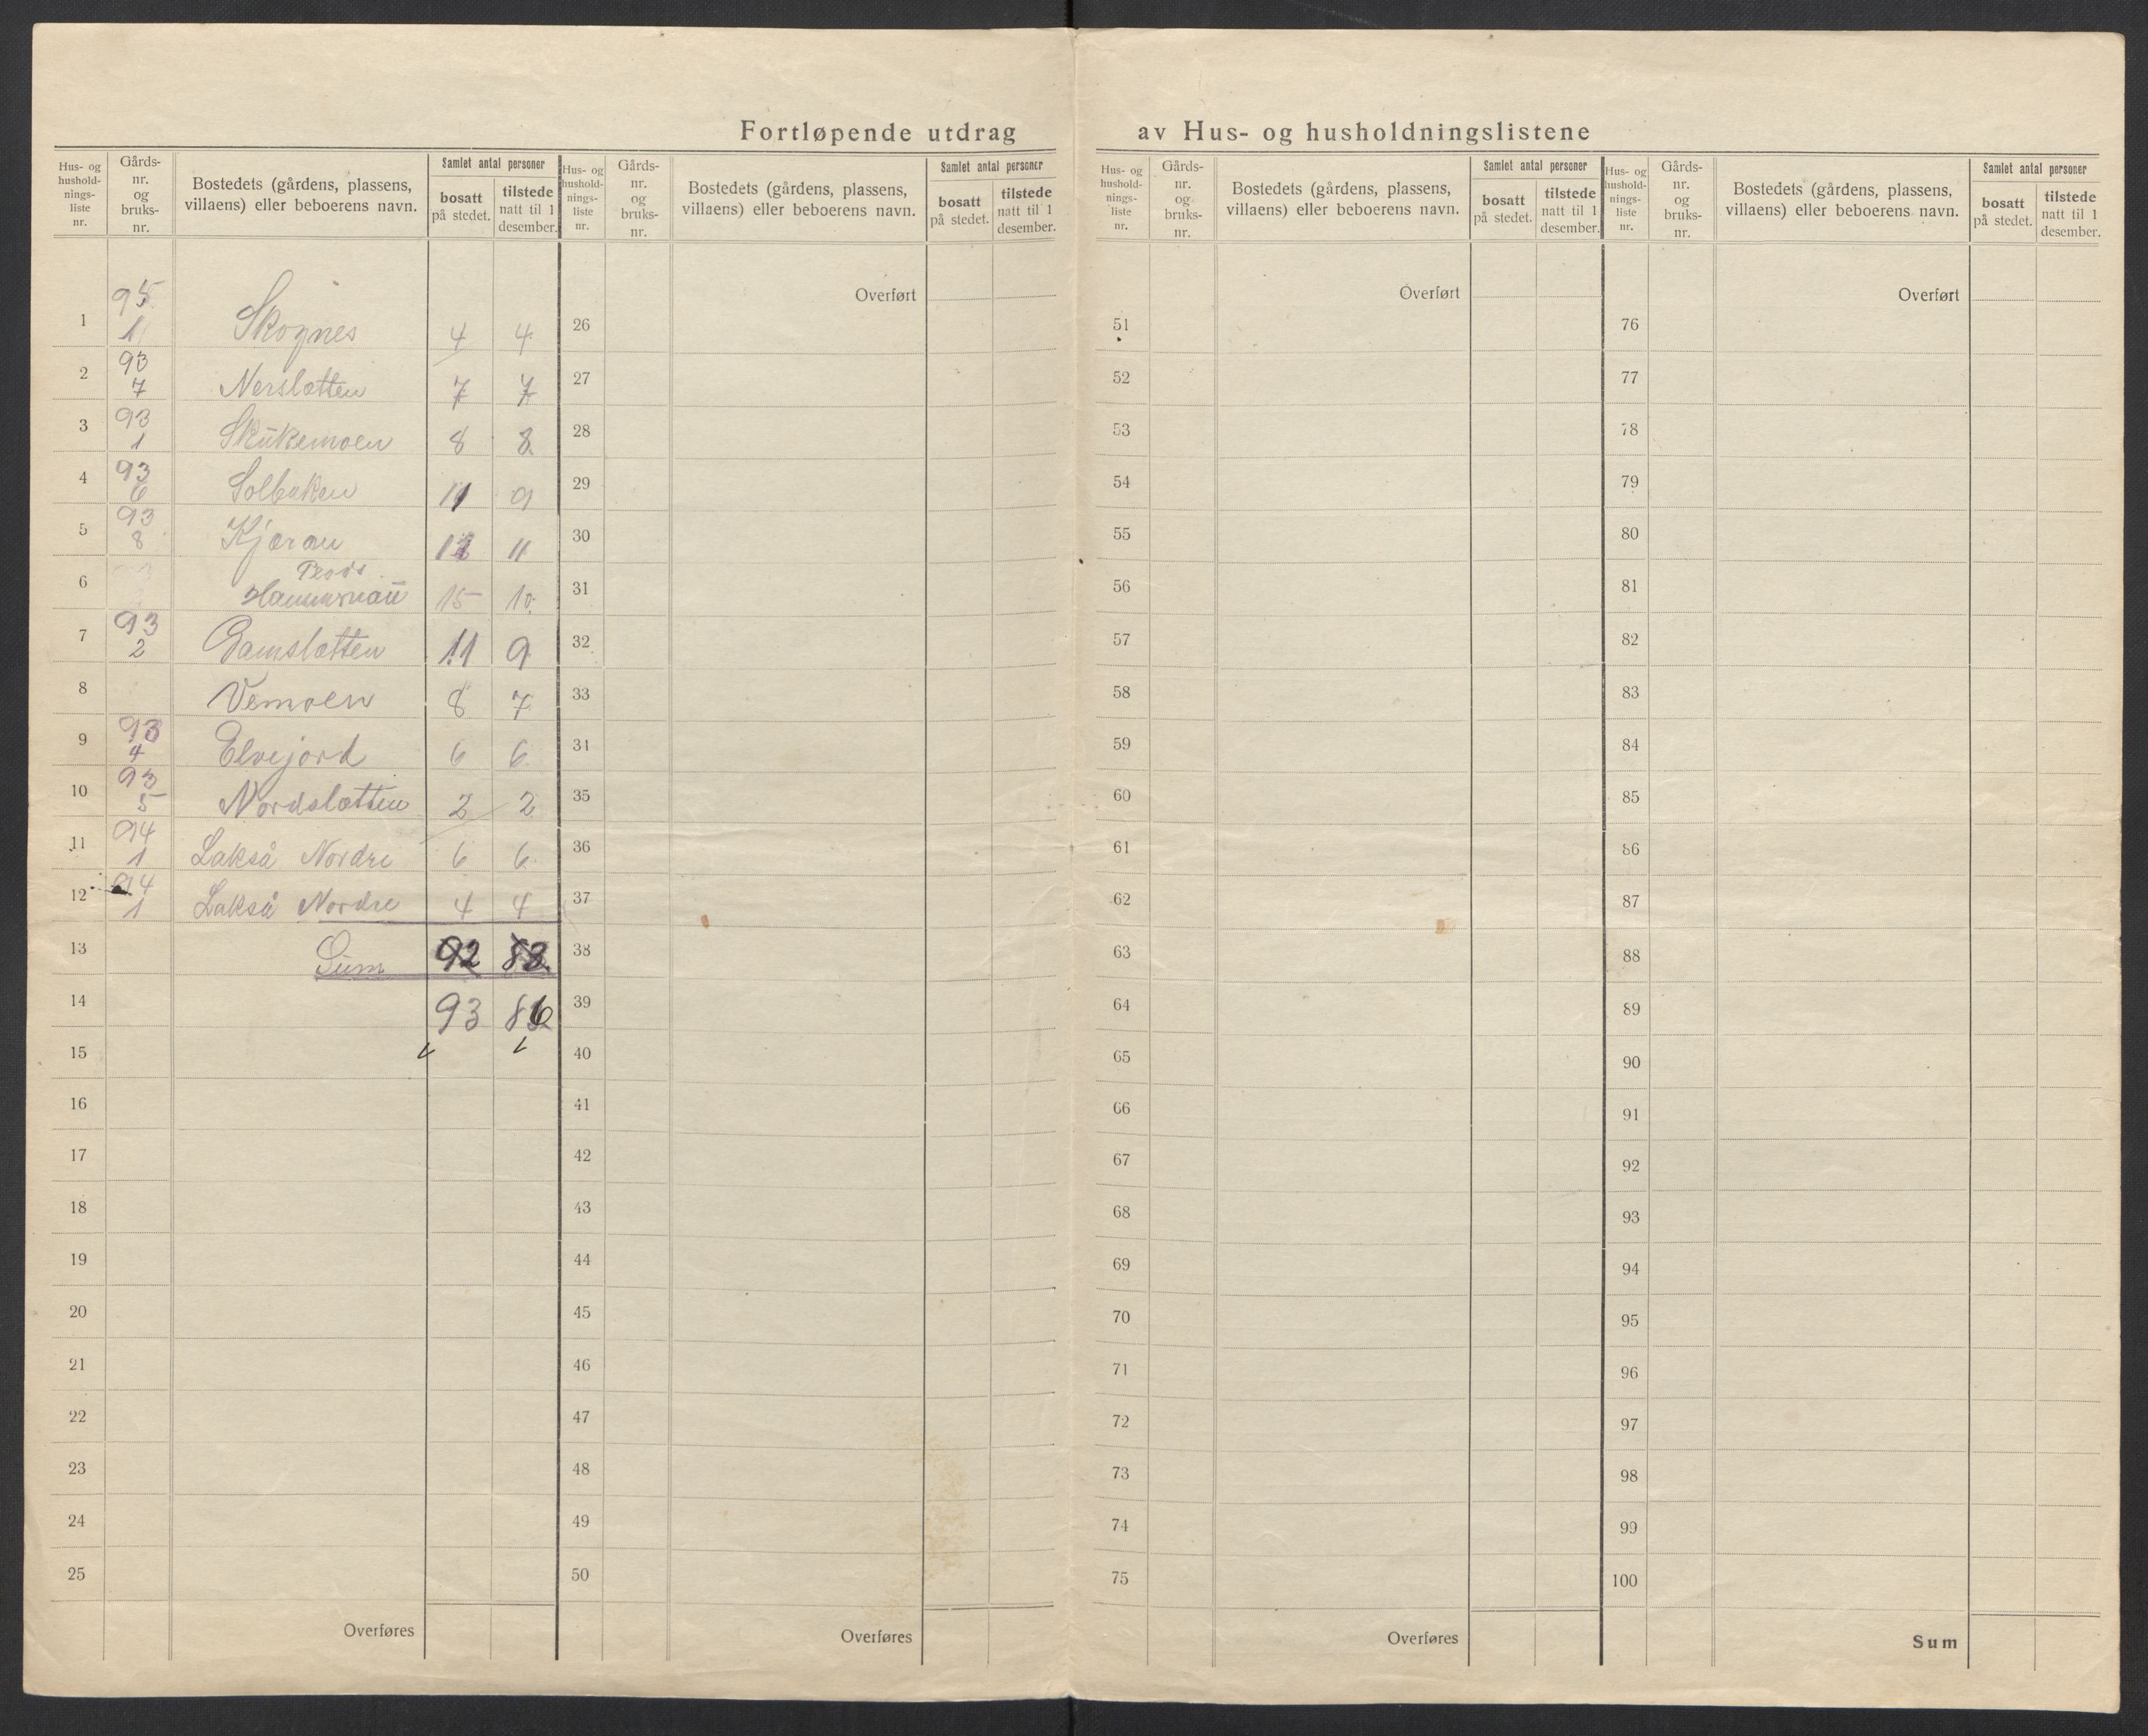 Fortløpende utdrag av Hus- og husholdningslistene
Hus- og
hushold-
nings-
liste
nr.
Gårds-
nr.
og
bruks-
nr.
Bostedets (gårdens, plassens,
villaens) eller beboerens navn.
Samlet antal personer
bosatt
på stedet.
tilstede
natt til 1
desember.
1 95 1 Skognes 4 4
2 93 7 Nerslætten 7 7
3 93 1 Skûkemoen 8 8
4 93 6 Solbakken 11 9
5 93 8 Kjærau 12 11
6 Hammernaû 15 10
7 93 2 Gamslætten 11 9
8 Vemoen 8 7
9 93 4 Elvejord 6 6
10 93 5 Nordslætten 2 2
11 94 1 Lakså Nordre 6 6
12 94 1 Lakså Nordre 4 4
13 Sûm 92 83
14 93 86
15
16
17
18
19
20
21
22
23
24
25
Overføres
Hus- og
hushold-
nings-
liste
nr.
Gårds-
nr.
og
bruks-
nr.
Bostedets (gårdens, plassens,
villaens) eller beboerens navn.
Samlet antal personer
bosatt
på stedet.
tilstede
natt til 1
desember.
Overført
26
27
28
29
30
31
32
33
31
35
36
37
38
39
40
41
42
43
44
45
46
47
48
49
50
Overføres
Hus- og
hushold-
nings-
liste
nr.
Gårds-
nr.
og
bruks-
nr.
Bostedets (gårdens, plassens,
villaens) eller beboerens navn.
Samlet antal personer
bosatt
på stedet.
tilstede
natt til 1
desember.
Overført
51
52
53
54
55
56
57
58
59
60
61
62
63
64
65
66
67
68
69
70
71
72
73
74
75
Overføres
Hus- og
hushold-
nings-
liste
nr.
Gårds-
nr.
og
bruks-
nr.
Bostedets (gårdens, plassens,
villaens) eller beboerens navn.
Samlet antal personer
bosatt
på stedet.
tilstede
natt til 1
desember.
Overført
76
77
78
79
80
81
82
83
84
85
86
87
88
89
90
91
92
93
94
95
96
97
98
99
100
Sum